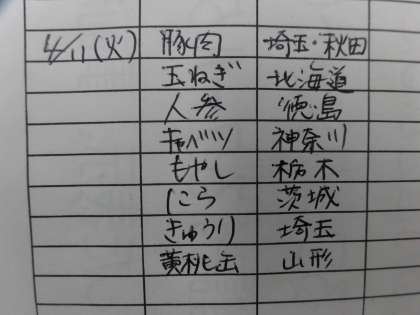 4/11(火) 豚肉 埼玉・秋田
玉ねぎ 北海道
人参 徳島
キャベツ 神奈川
もやし 栃木
にら 茨城
きゅうり 埼玉
黄桃缶 山形